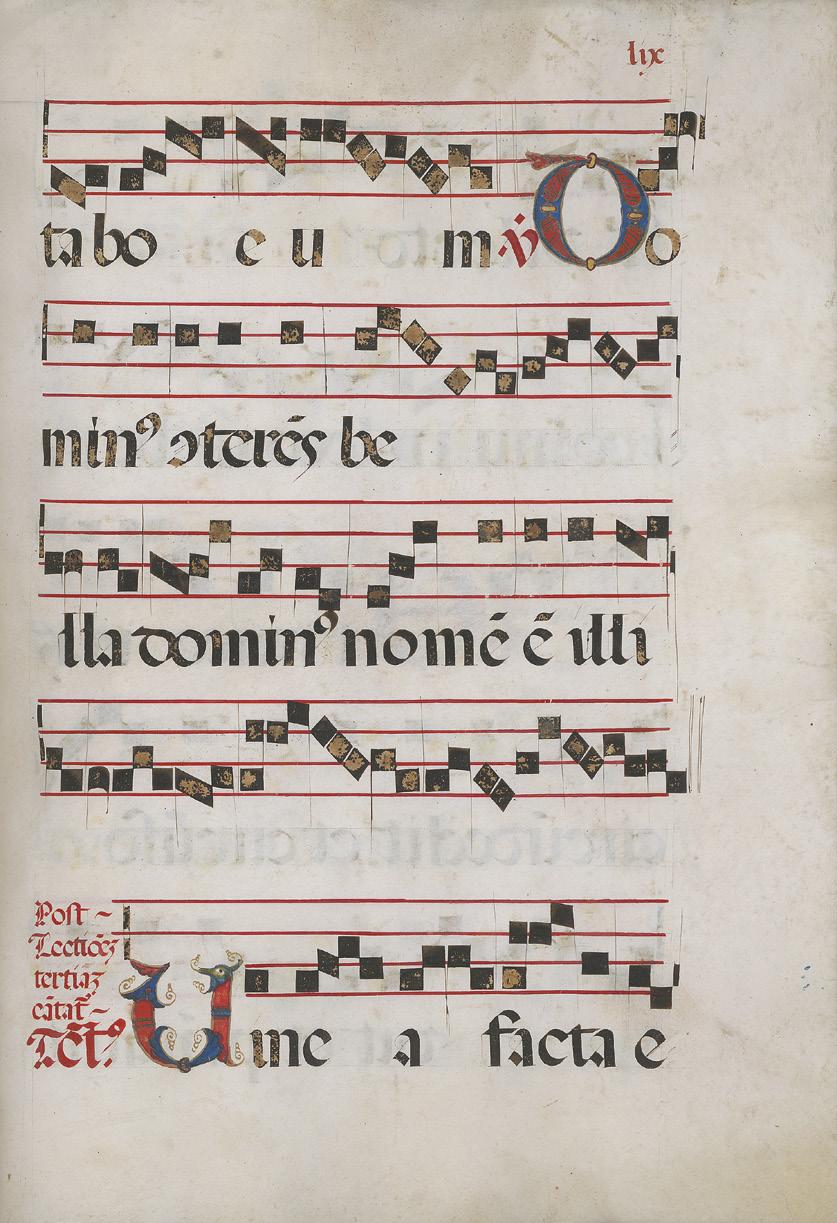 lix
tabo e u m v̇ Do
minꝰ ↄterēs be
lla dominꝰ nomē ē illi
Post ~
Lectiōēꝫ
tertiaꝫ
cātat̄ ~
Tc̄t̄ꝰ Uine a facta e